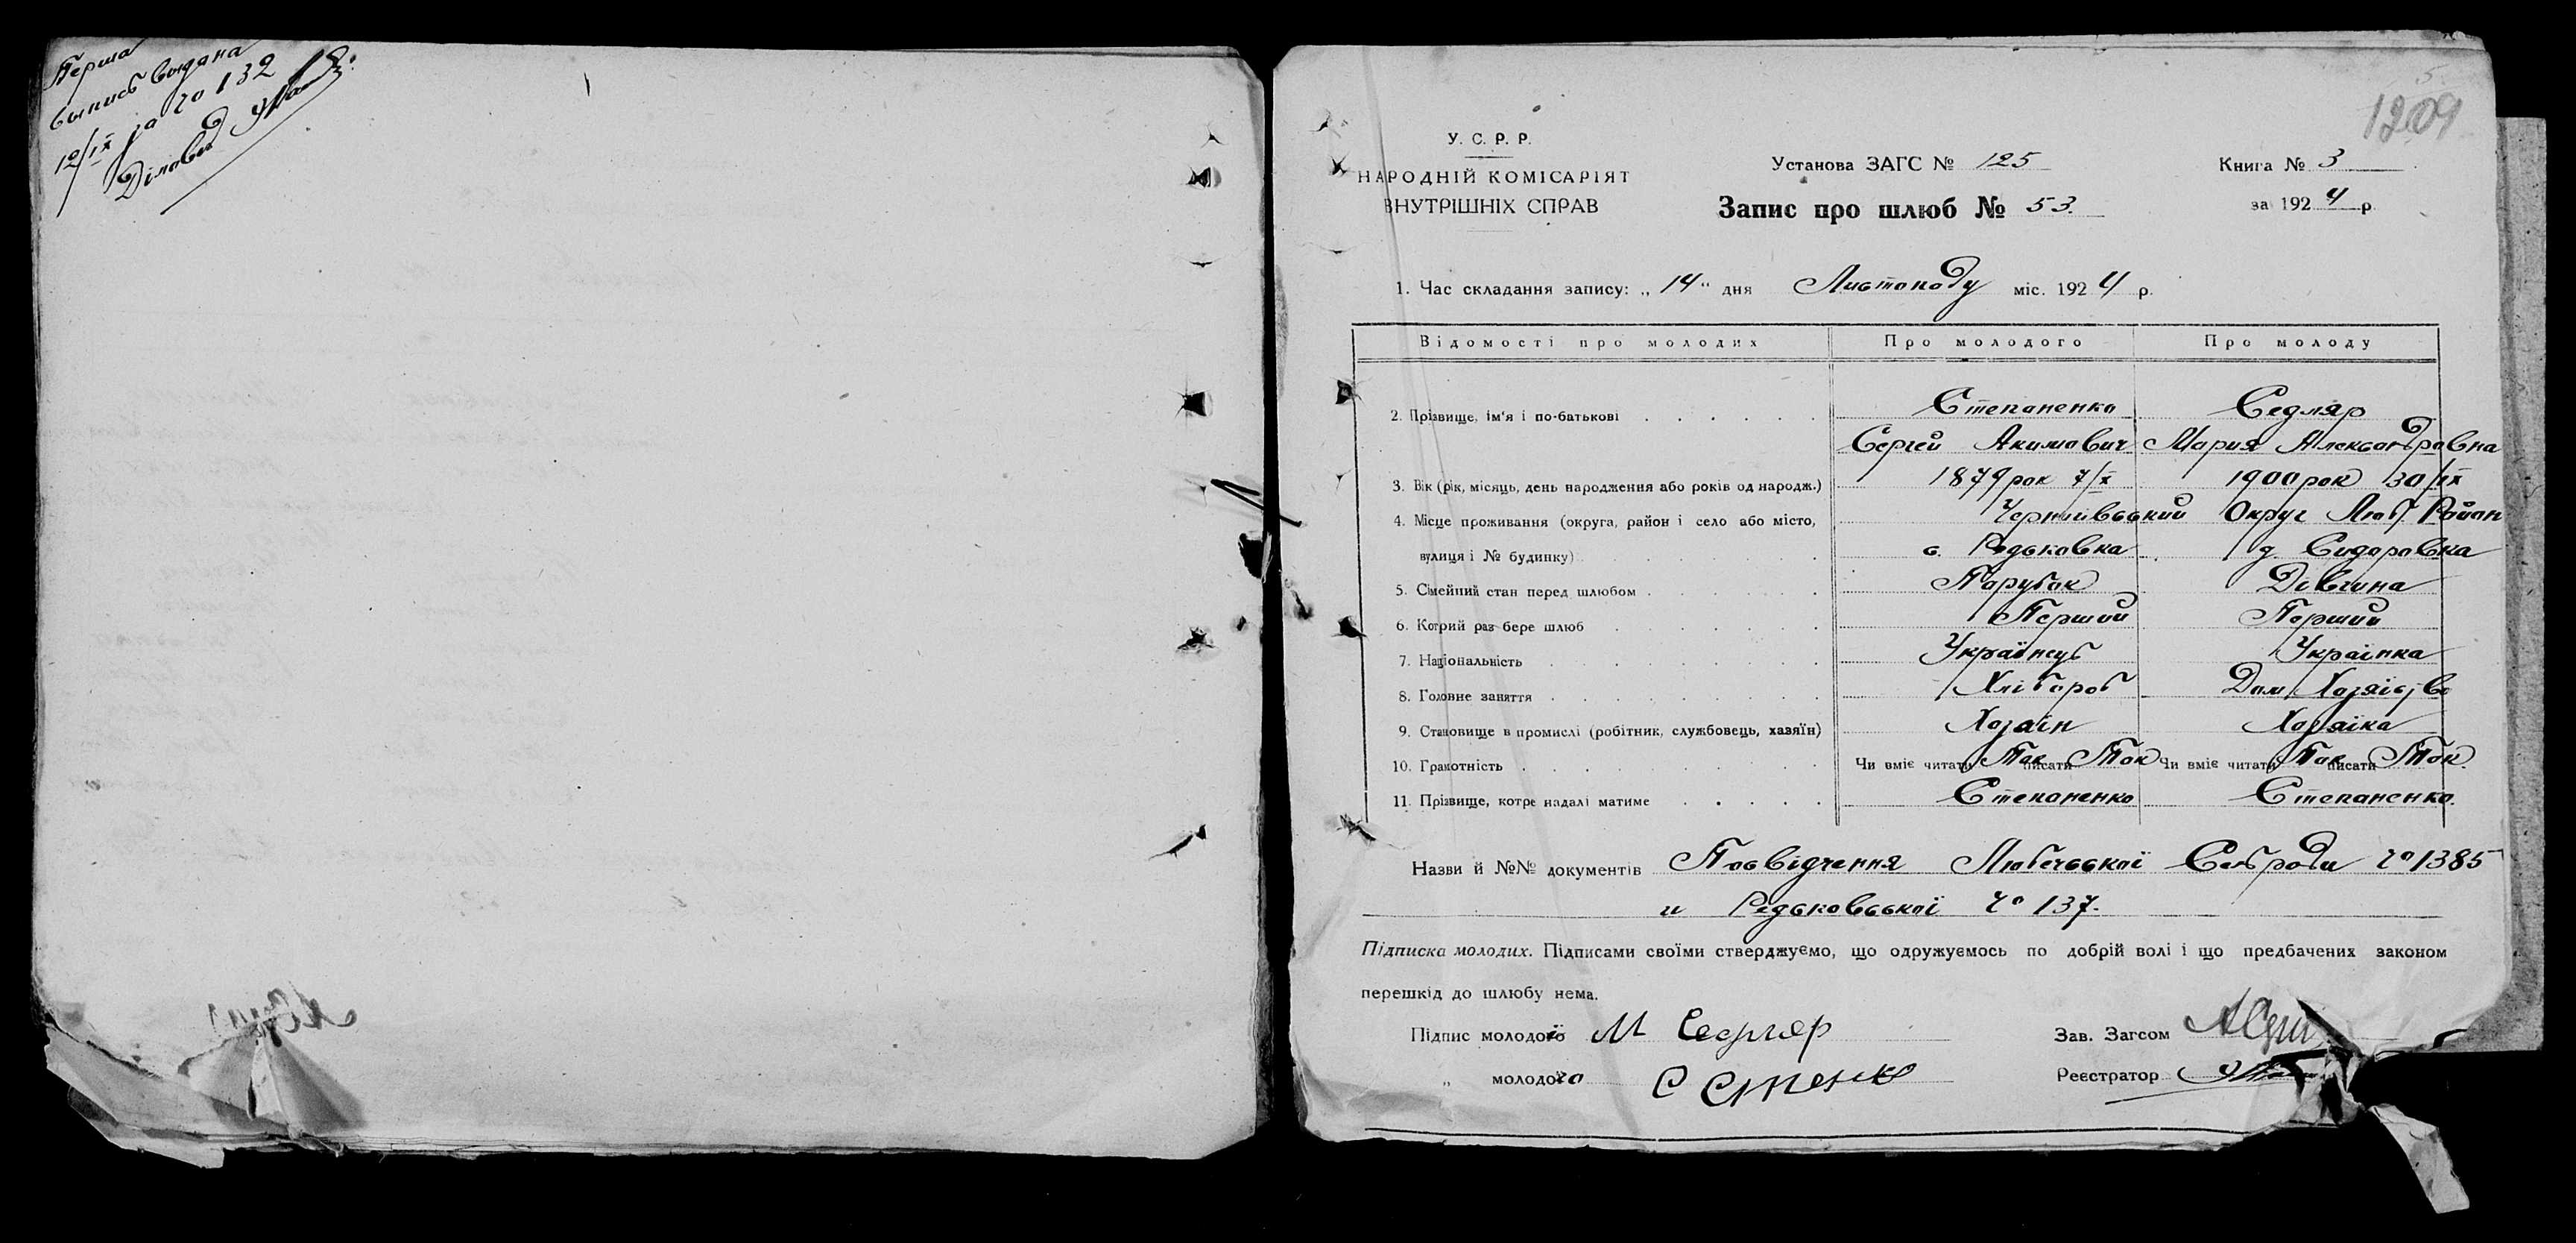 Перша
выпись выдана
12/IX за чо 132
Діловод
У. С. Р. Р.
НАРОДНІЙ КОМІСАРІЯТ
ВНУТРІШНІХ СПРАВ
Установа ЗАГС № 125
Запис про шлюб № 53.
Книга № 3
за 1924 р.
1209
1. Час складання запису: „14“ дня Листопаду міс. 1924 р.
Відомості про молодих Про молодого Про молоду
2. Прізвище, ім'я і по-батькові Степаненко Седляр
Сергей Акимович Мария Александровна
3. Вік (рік, місяць, день народження або років од народж.) 1879 рок 7/X 1900 рок 30/IX
4. Місце проживання (округа, район і село або місто, Чернигівський Округ Люб. Район
вулиця і № будинку) с. Редьковка д. Сидоровка
5. Сімейний стан перед шлюбом Парубок Дівчина
6. Котрий раз бере шлюб Перший Перший
7. Національність Українець Українка
8. Головне заняття Хлібороб Дом Хозяїство
9. Становище в промислі (робітник, службовець, хазяїн) Хозяін Хозяіка
10. Грамотність Чи вміє читати Так писати Так Чи вміє читати Так писати Так.
11. Прізвище, котре надалі матиме Степаненко Степаненко.
Назви й №№ документів Посвідчення Любечської Сельради чо 1385
и Редьковської чо 137.
Підписка молодих. Підписами своїми стверджуємо, що одружуємось по добрій волі і що предбачених законом
перешкід до шлюбу нема.
Підпис молодої МСедляр
Зав. Загсом
„ молодого С Степенко
Реєстратор